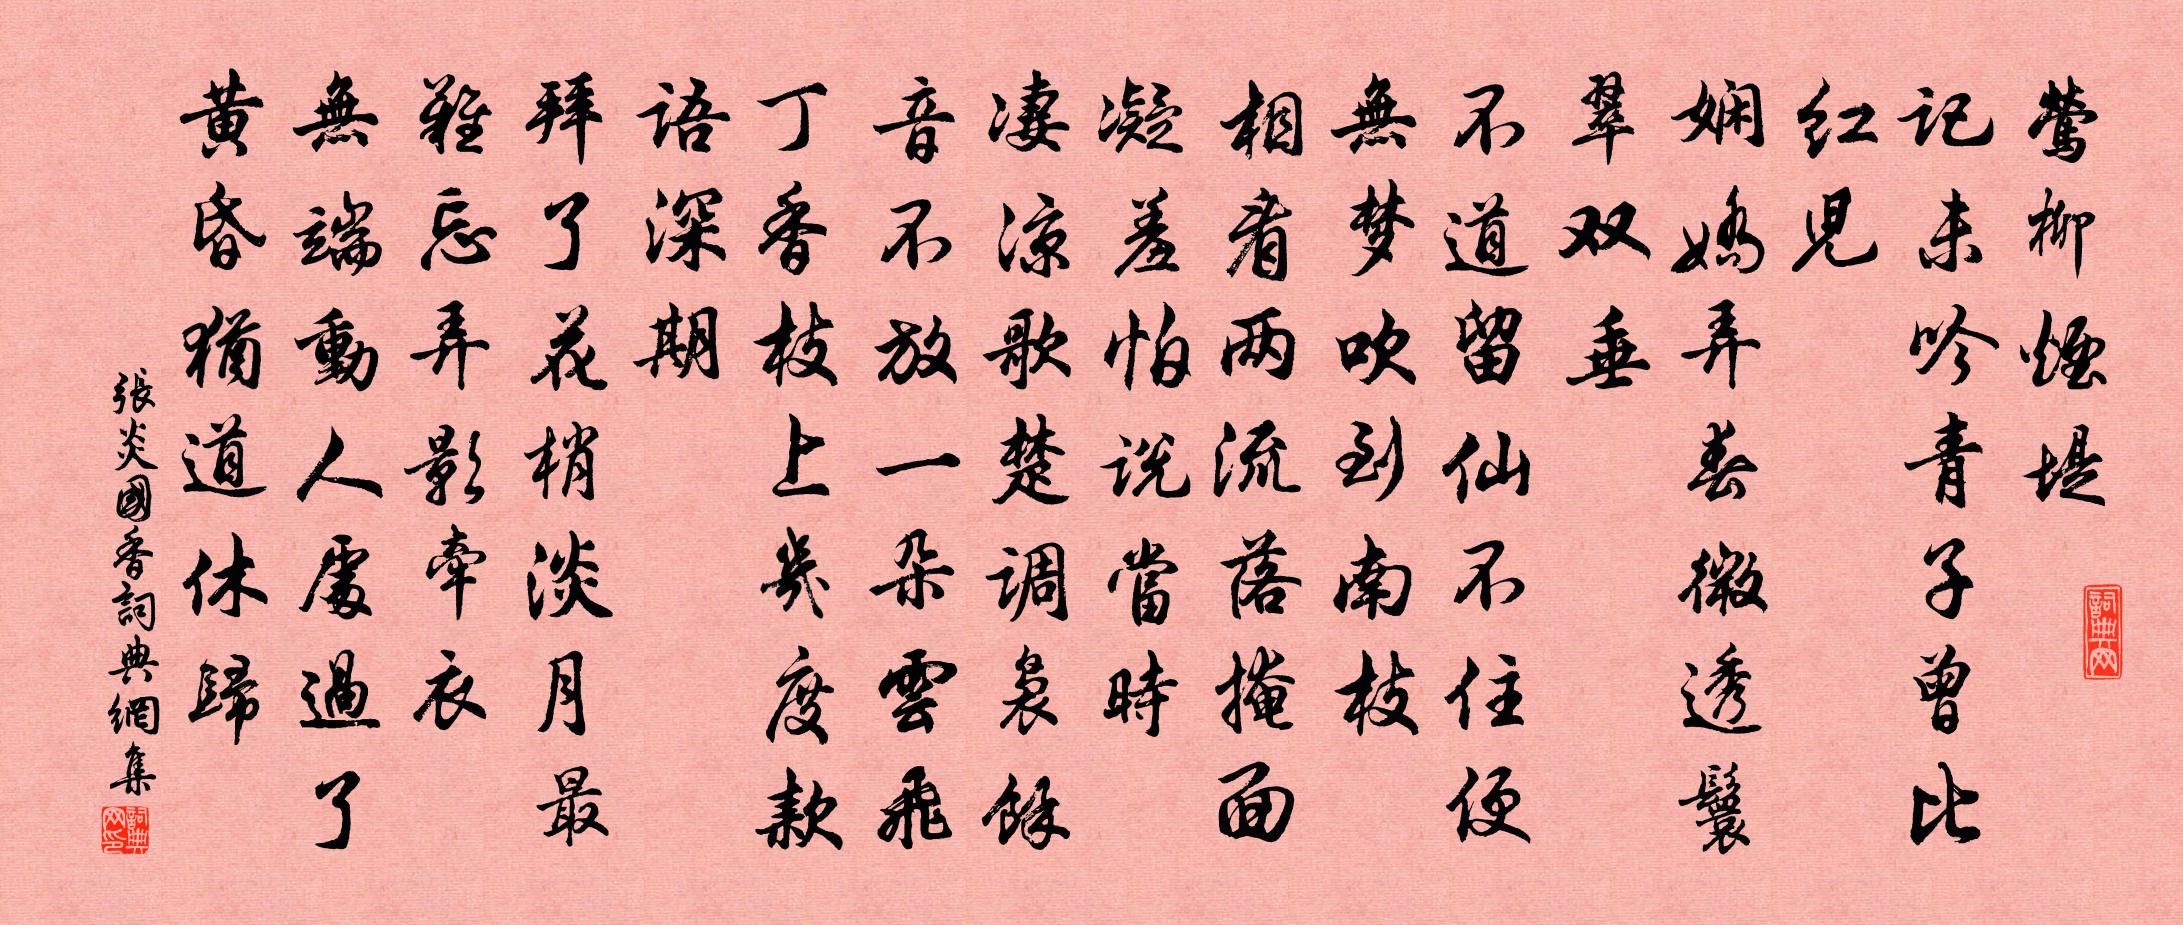 鶯柳煙堤
记未吟青子曾比
红児
娴嬌弄春微透鬟
翠双垂
不道留仙不住便
無梦吹到南枝
相看两流落掩面
凝羞怕说當時
凄涼歌楚调袅餘
音不放一朵雲飛
丁香枝上幾度款
语深期
拜了花梢淡月最
難忘弄影牵衣
無端動人處過了
黄昏猶道休歸
張炎國香詞典網集
詞典网
詞典网印